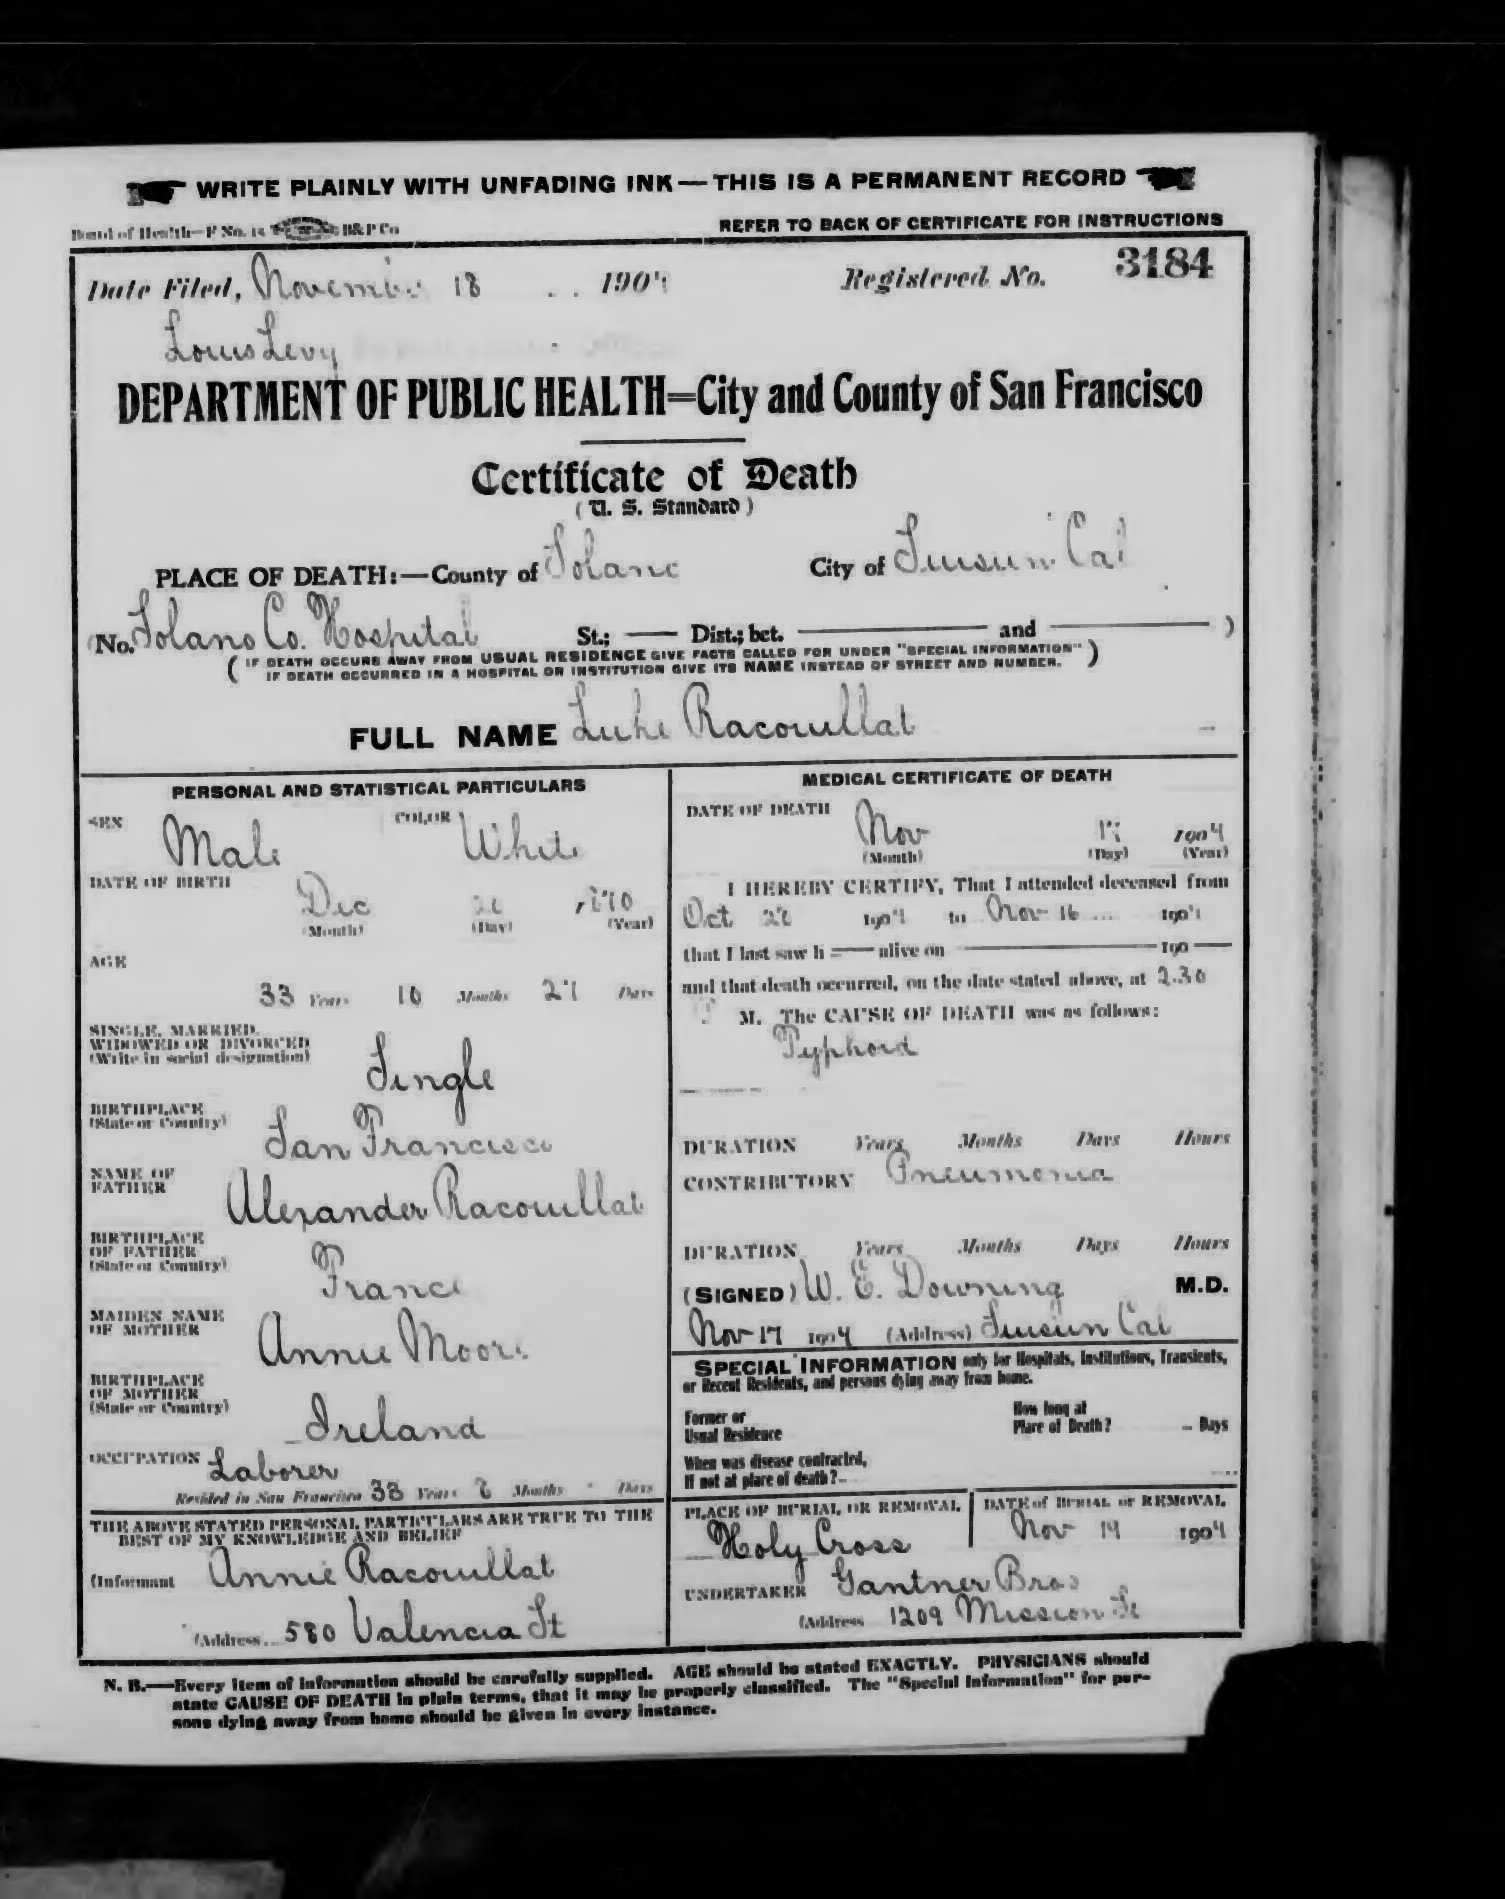 WRITE PLAINLY WITH UNFADING INK — THIS IS A PERMANENT RECORD
Board of Health—F No. 14 B&P Co
REFER TO BACK OF CERTIFICATE FOR INSTRUCTIONS
Date Filed, November 18 1904 Registered No. 3184
Louis Levy
DEPARTMENT OF PUBLIC HEALTH=City and County of San Francisco
Certificate of Death
(U. S. Standard)
PLACE OF DEATH:—County of Solano City of Suisun Cal
(No. Solano Co. Hospital St.; — Dist.; bet. — and — )
(IF DEATH OCCURS AWAY FROM USUAL RESIDENCE GIVE FACTS CALLED FOR UNDER "SPECIAL INFORMATION"
IF DEATH OCCURRED IN A HOSPITAL OR INSTITUTION GIVE ITS NAME INSTEAD OF STREET AND NUMBER.)
FULL NAME Luke Racouillat
PERSONAL AND STATISTICAL PARTICULARS
SEX Male COLOR White
DATE OF BIRTH Dec
(Month) (Day) (Year)
AGE
33 Years 10 Months 27 Days
SINGLE, MARRIED,
WIDOWED OR DIVORCED
(Write in social designation) Single
BIRTHPLACE
(State or Country) San Francisco
NAME OF
FATHER Alexander Racouillat
BIRTHPLACE
OF FATHER
(State or Country) France
MAIDEN NAME
OF MOTHER Annie Moore
BIRTHPLACE
OF MOTHER
(State or Country) Ireland
OCCUPATION Laborer
Resided in San Francisco 33 Years Months Days
THE ABOVE STATED PERSONAL PARTICULARS ARE TRUE TO THE
BEST OF MY KNOWLEDGE AND BELIEF
(Informant Annie Racouillat
(Address 580 Valencia St
MEDICAL CERTIFICATE OF DEATH
DATE OF DEATH Nov 17 1904
(Month) (Day) (Year)
I HEREBY CERTIFY, That I attended deceased from
Oct 1904 to Nov 16 1904
that I last saw h — alive on — 190 —
and that death occurred, on the date stated above, at 2.30
M. The CAUSE OF DEATH was as follows:
Typhoid
DURATION Years Months Days Hours
CONTRIBUTORY Pneumonia
DURATION Years Months Days Hours
(SIGNED) W. E. Downing M.D.
Nov 17 1904 (Address) Suisun Cal
SPECIAL INFORMATION only for Hospitals, Institutions, Transients,
or Recent Residents, and persons dying away from home.
Former or
Usual Residence
How long at
Place of Death? Days
When was disease contracted,
If not at place of death?
PLACE OF BURIAL OR REMOVAL
Holy Cross
DATE of BURIAL or REMOVAL
Nov 19 1904
UNDERTAKER Gantner Bros
(Address 1209 Mission St
N. B.—Every item of information should be carefully supplied. AGE should be stated EXACTLY. PHYSICIANS should
state CAUSE OF DEATH in plain terms, that it may be properly classified. The "Special Information" for per-
sons dying away from home should be given in every instance.